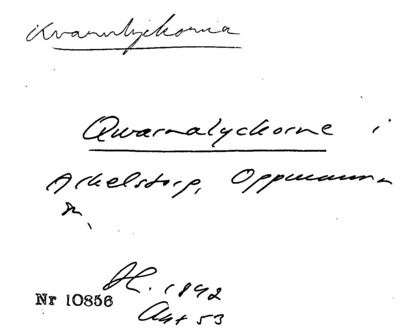 Kvarnlyckorna
Qwarnalyckorne i
Arkelstorp, Oppmanna
sn,
Nr 10856
H. 1842
Akt 53